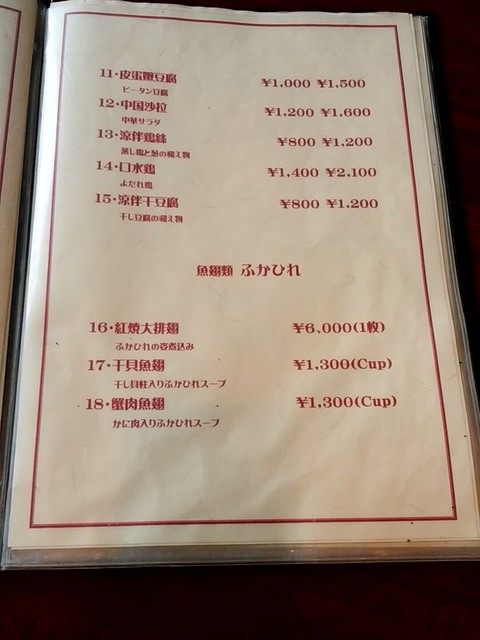 11・皮蛋嫩豆腐 ¥1.000 ¥1,500
ピータン豆腐
12・中国沙拉 ¥1,200 ¥1,600
中華サラダ
13・涼伴鶏絲 ¥800 ¥1.200
蒸し鶏と葱の和え物
14・口水鶏 ¥1,400 ¥2.100
よだれ鶏
15・涼伴干豆腐 ¥800 ¥1,200
干し豆腐の和え物
魚翅類 ふかひれ
16・紅焼大排翅 ¥6,000(1枚)
ふかひれの姿煮込み
17・干貝魚翅 ¥1,300(Cup)
干し貝柱入りふかひれスープ
18・蟹肉魚翅 ¥1,300(Cup)
かに肉入りふかひれスープ